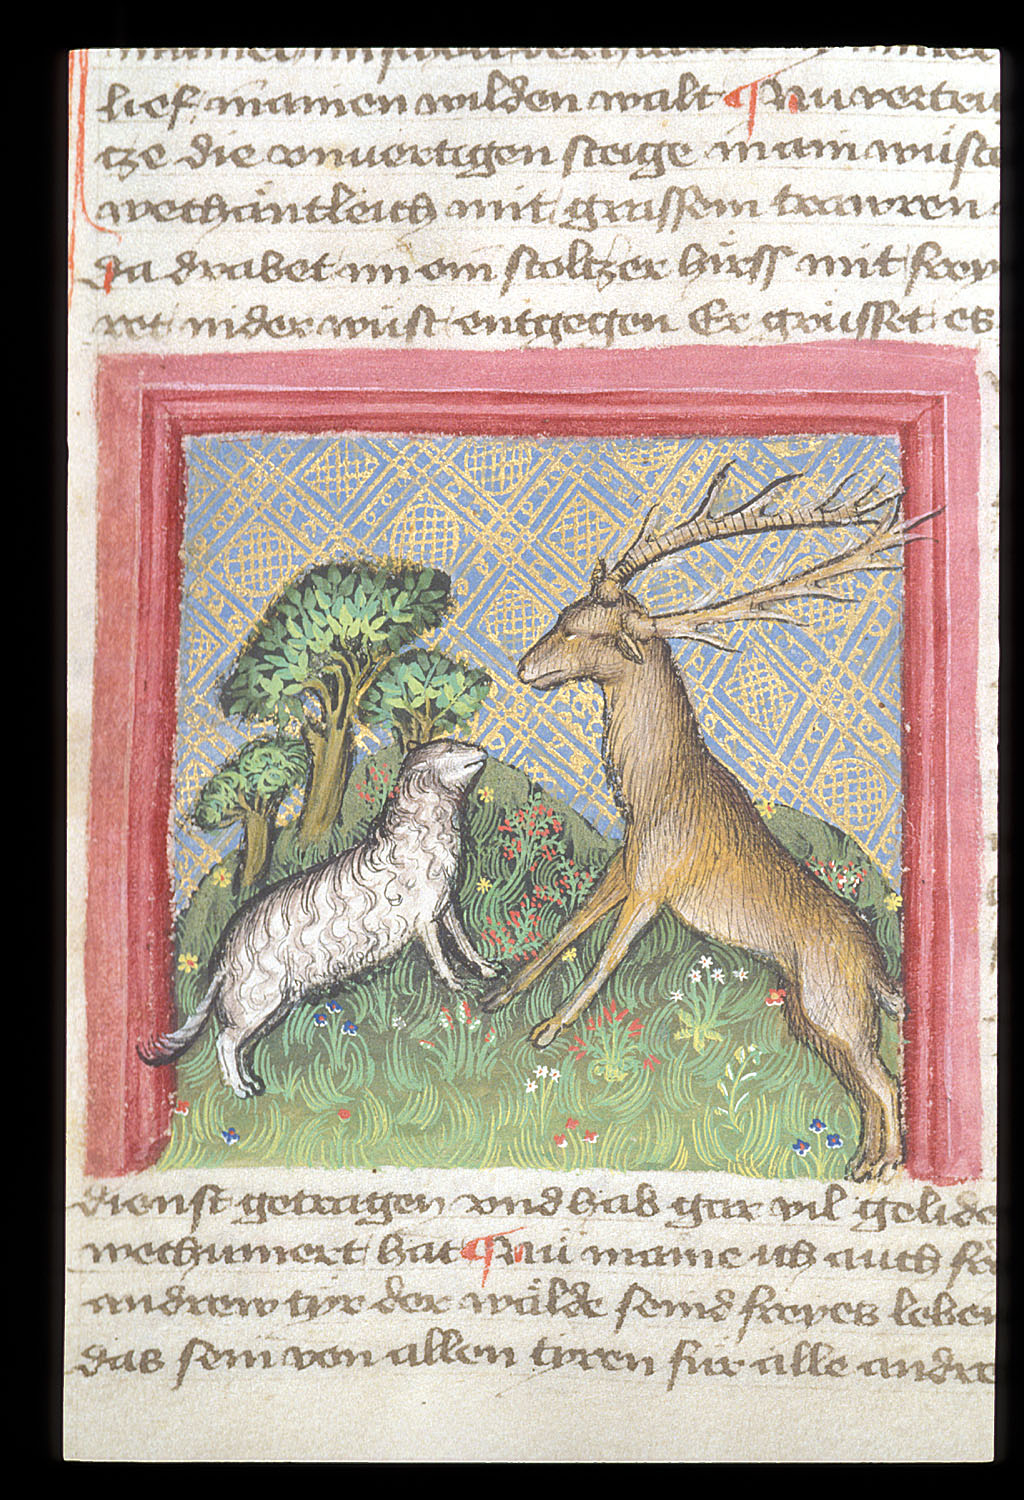 lief. mainen wilden walt ¶ Nu vertrei
tze die vnuertigen steige main wüste
wechäntleich mit grassem trawren
da drabet im ein stoltzer hirss mit frey
ret nider wüst entgegen Er grüsset es
dienst getragen vnd hab gar vil gelide
wechumert hat ¶ Nü maine ich auch
andrew tyr der wälde seind freyes leben
das sein von allen tyren für alle andre